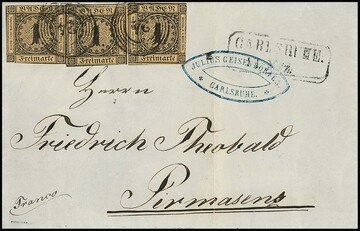 BADEN BADEN BADEN
1 1 1
Freimarke Freimarke Freimarke
CARLSRUHE.
JULIUS GEISENDÖRFER
* CARLSRUHE. *
Herrn
Friedrich Theobald
Franco
Pirmasens